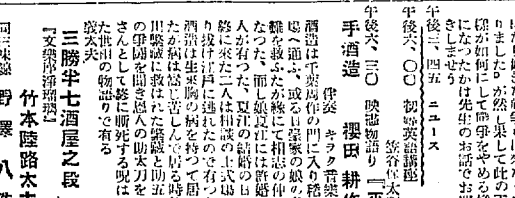 りました。が然し果して此の
様が如何にして戰爭をやめる
になつたかは先生のお話でお
きしませう
午後三、四五 ニュース
午後六、〇〇 初等英語講座
午後六、三〇 映畫物語り
手酒造
伴奏 キラク音樂
櫻田耕作
酒造は千葉周作の門に入り
場へ通ふ、或る日豪家の娘の
難を救ふたが縁にて相志の仲
なつた、而し娘夏江には許婚
人が有つた、夏江の結婚の日
終に來た二人は相談の上式場
り拔け江戸に逃れたので有つ
酒造は生來胸の病を持つて居
たが病に惱み苦しんで居る時
川繁藏に救はれた繁藏と助五
の爭鬪を聞き恩人の助太刀を
さんとして遂に斬死する呪は
た世相の物語りで有る
義太夫
三勝半七酒屋之段
『文樂座淨瑠璃』
竹本陸路太
同三味線 野澤八